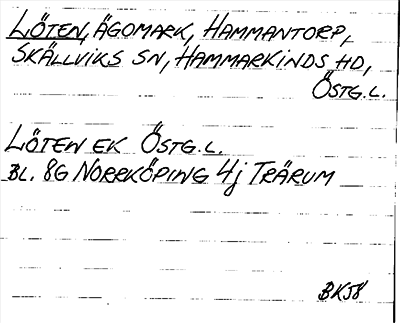 LÖTEN, ÄGOMARK, HAMMANTORP,
SKÄLLVIKS SN, HAMMARKINDS HD,
ÖSTG.L.
LÖTEN EK ÖSTG.L.
BL. 8G NORRKÖPING 4j TRÄRUM
BK58